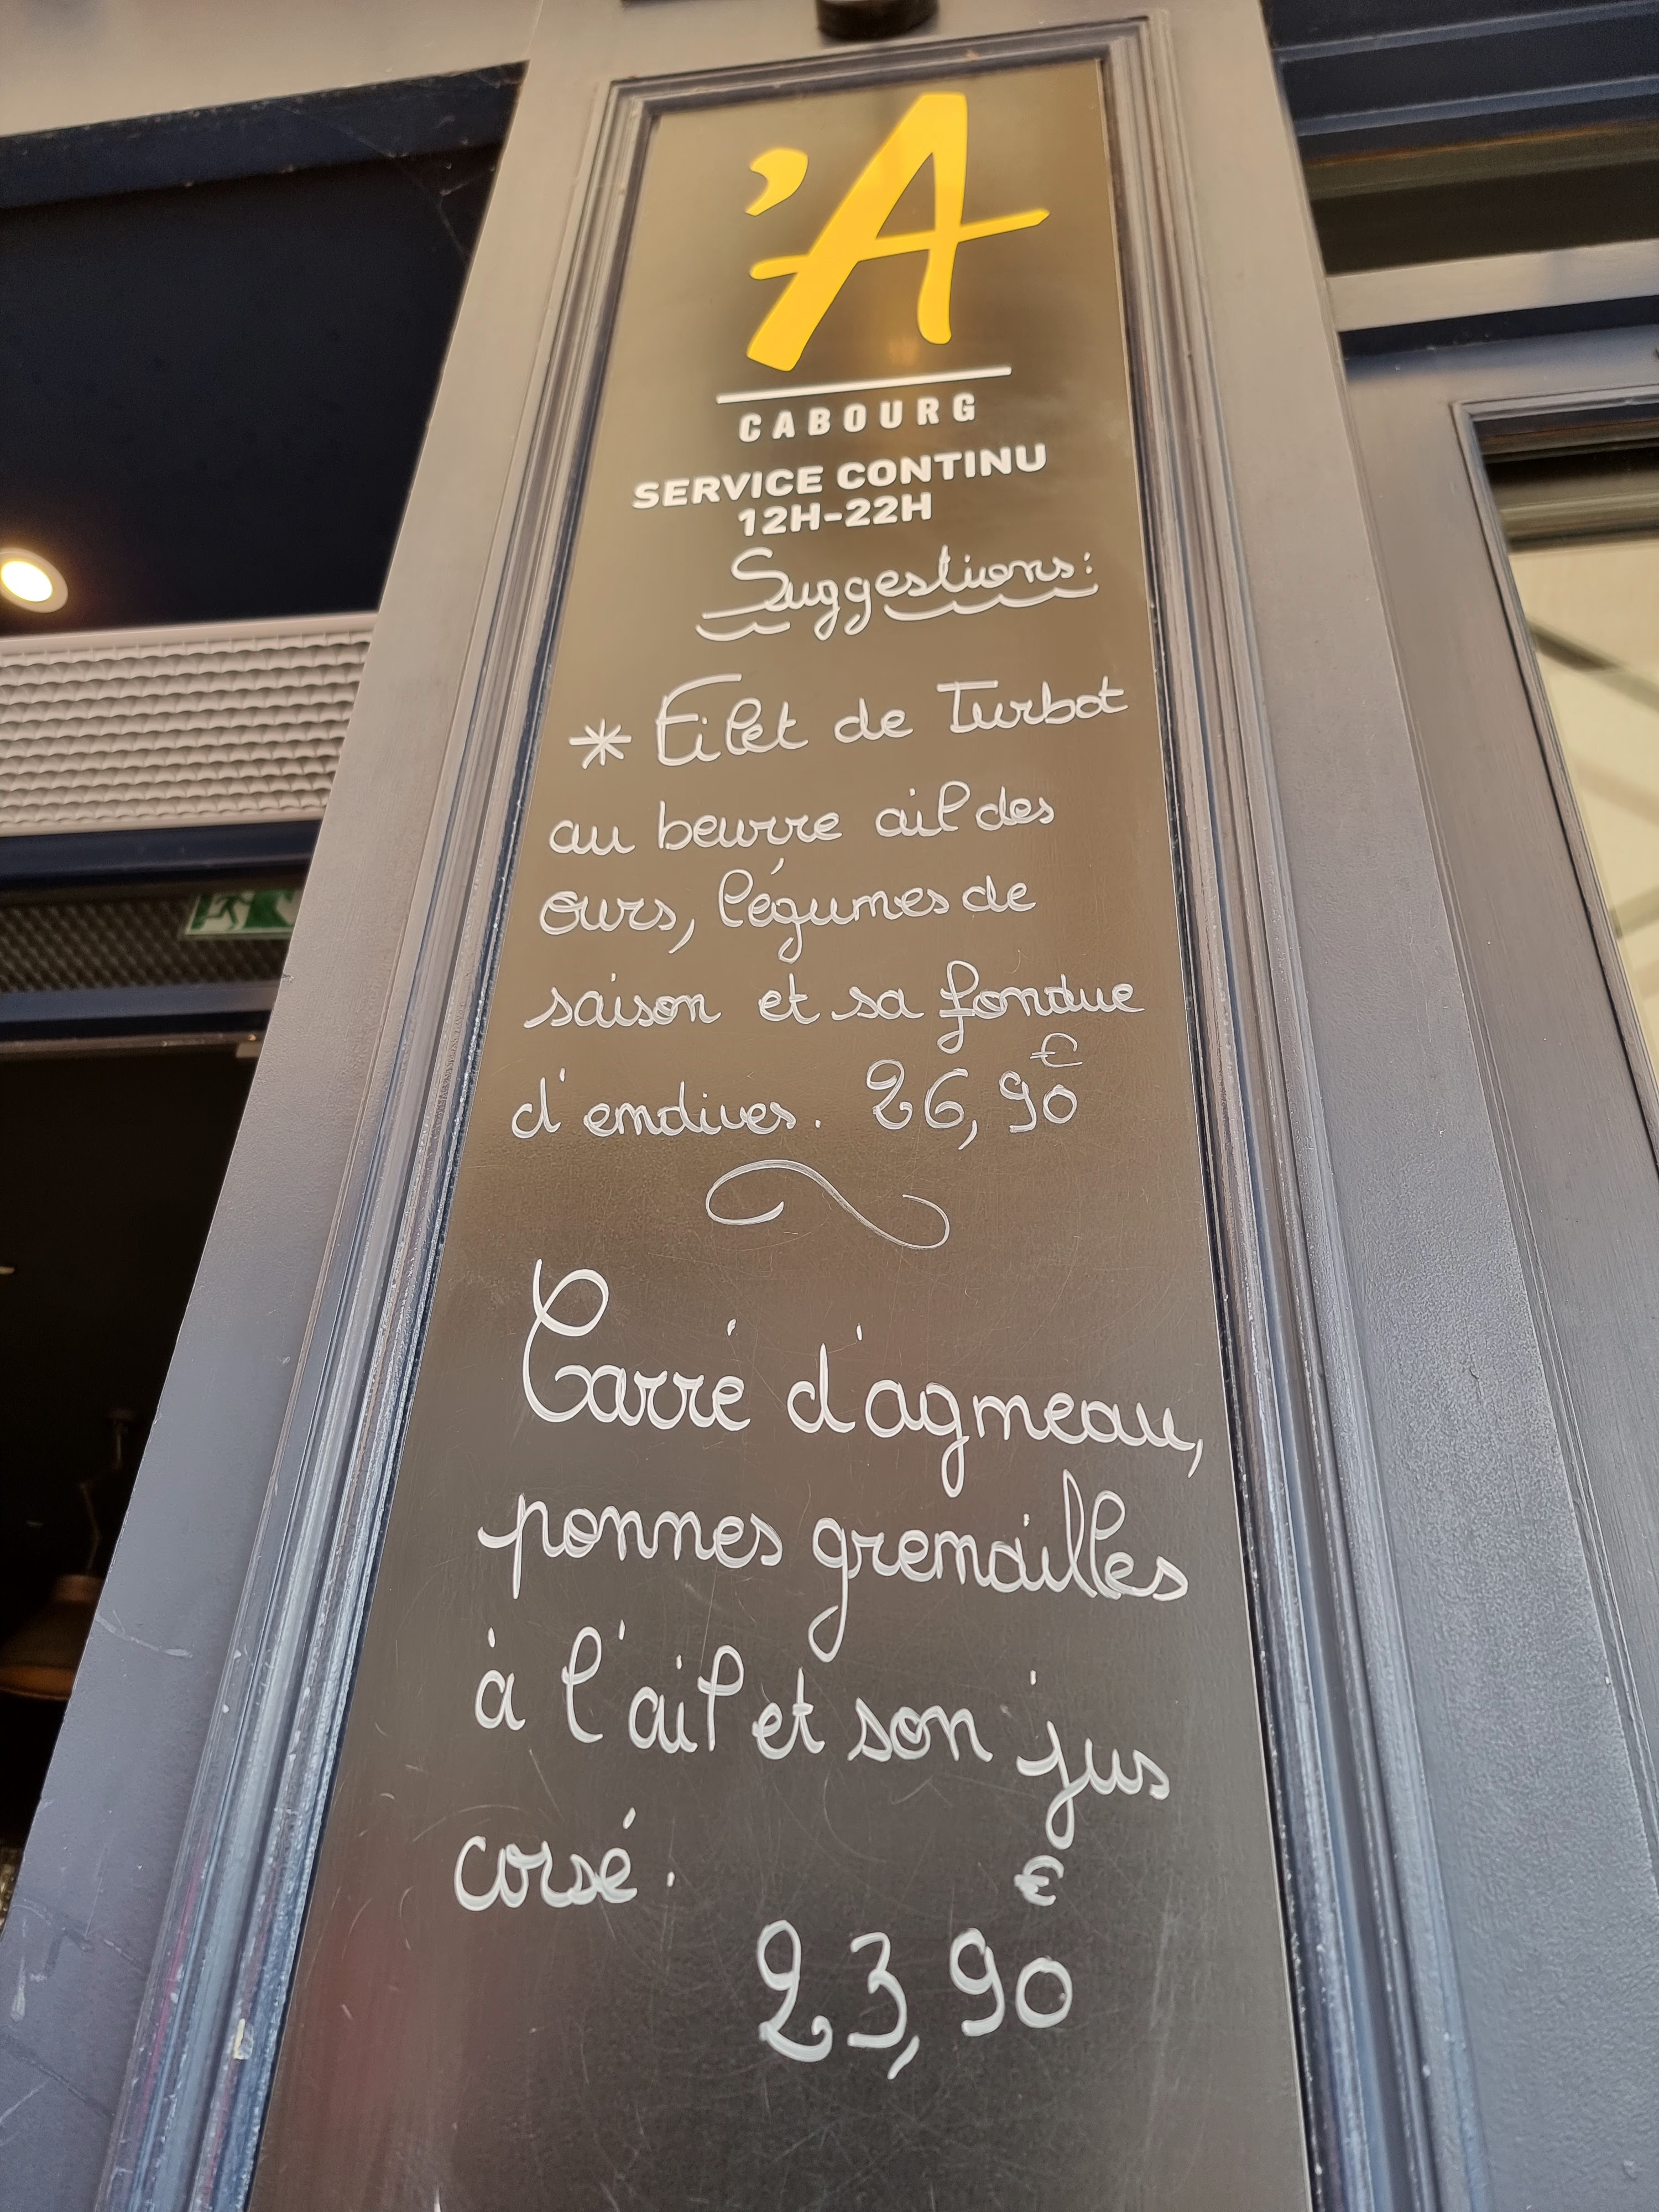 'A
CABOURG
SERVICE CONTINU
12H-22H
Suggestions:
* Filet de Turbot
au beurre ail des
ours, légumes de
saison et sa fondue
d'endives. 26,90€
Carré d'agneau,
pommes grenailles
à l'ail et son jus
corsé.
23,90€